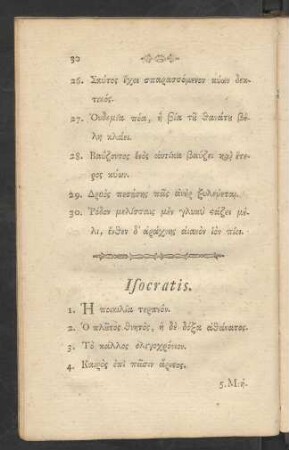 30
26. Σκύτος ἔχει σπαρασσόμενον κύων δεκ-
τικός.
27. Οὐδεμία πύα, ἢ βία τῦ θανάτυ βέ-
λη κλαίει.
28. Βαΰζοντος ἑνὸς αὐτίκα βαύζει καὶ ἕτε-
ρος κύων.
29. Δρυὸς πεσύσης πᾶς ἀνὴρ ξυλεύεται.
30. Ῥόδον μελίσσαις μὲν γλυκὺ τάζει μέ-
λι, ἔνθεν δ' ἀράχνης αἰανὸν ἰὸν πίνει.
Isocratis.
1. Ἡ ποικιλία τερπνόν.
2. Ὁ πλῦτος θνητός, ἡ δὲ δόξα ἀθάνατος.
3. Τὸ κάλλος ὀλιγοχρόνιον.
4. Καιρὸς ἐπὶ πᾶσιν ἄριστος.
5. Μέ-